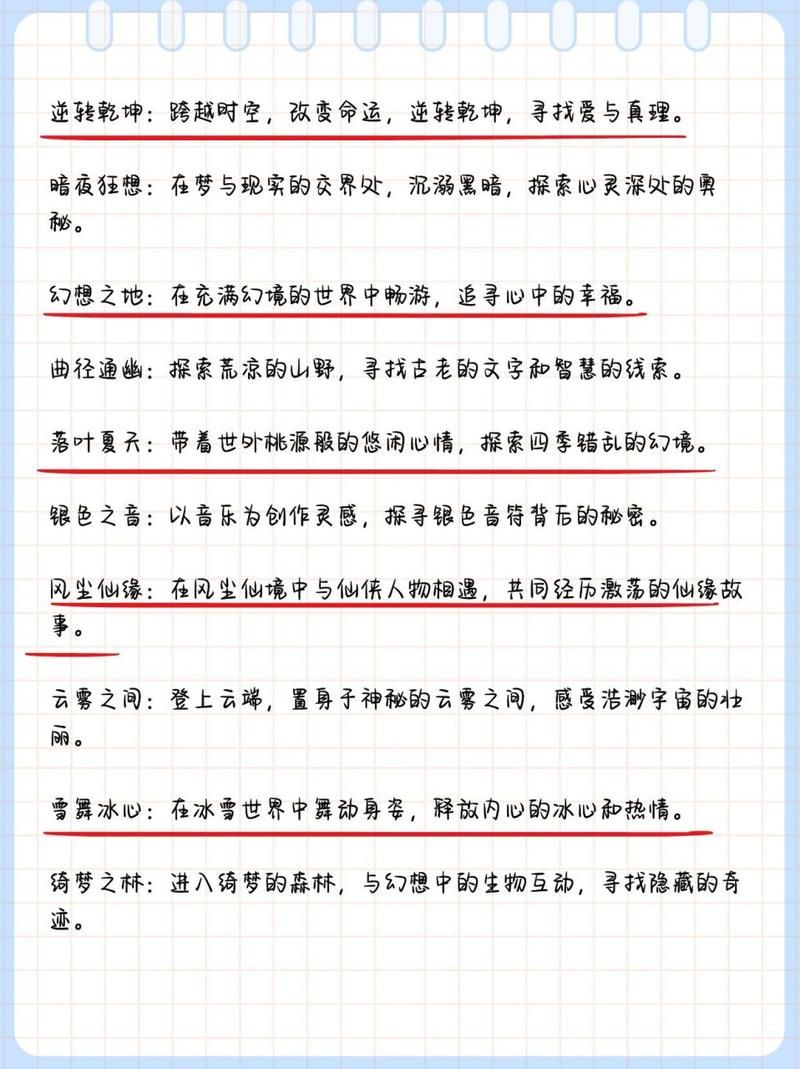 逆转乾坤：跨越时空，改变命运，逆转乾坤，寻找爱与真理。
暗夜狂想：在梦与现实的交界处，沉溺黑暗，探索心灵深处的奥
秘。
幻想之地：在充满幻境的世界中畅游，追寻心中的幸福。
曲径通幽：探索荒凉的山野，寻找古老的文字和智慧的线索。
落叶夏天：带着世外桃源般的悠闲心情，探索四季错乱的幻境。
银色之音：以音乐为创作灵感，探寻银色音符背后的秘密。
风尘仙缘：在风尘仙境中与仙侠人物相遇，共同经历激荡的仙缘故
事。
云雾之间：登上云端，置身于神秘的云雾之间，感受浩渺宇宙的壮
丽。
雪舞冰心：在冰雪世界中舞动身姿，释放内心的冰心和热情。
绮梦之林：进入绮梦的森林，与幻想中的生物互动，寻找隐藏的奇
迹。